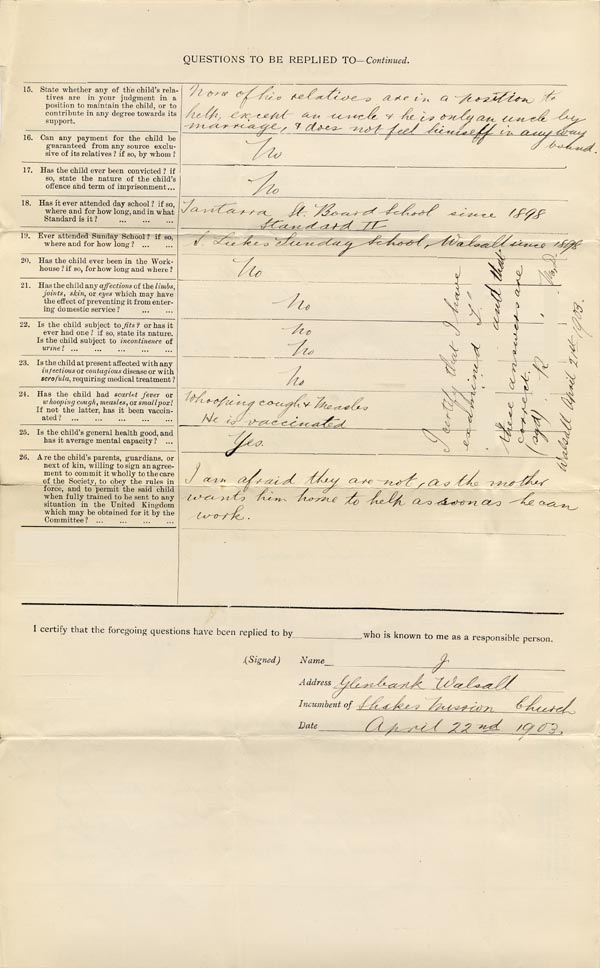 QUESTIONS TO BE REPLIED TO—Continued.
15. State whether any of the child's rela-
tives are in your judgment in a
position to maintain the child, or to
contribute in any degree towards its
support.
None of his relatives are in a position to
help, except an uncle & he is only an uncle by
marriage, & does not feel himself in any way
bound.
16. Can any payment for the child be
guaranteed from any source exclu-
sive of its relatives? if so, by whom?
No
17. Has the child ever been convicted? if
so, state the nature of the child's
offence and term of imprisonment...
No
18. Has it ever attended day school? if so,
where and for how long, and in what
Standard is it? ... ... ...
Tantarra St. Board School since 1898
Standard II
19. Ever attended Sunday School? if so,
where and for how long? ... ...
S. Lukes Sunday School, Walsall since 1898
20. Has the child ever been in the Work-
house? if so, for how long and where?
No
21. Has the child any affections of the limbs,
joints, skin, or eyes which may have
the effect of preventing it from enter-
ing domestic service? ... ...
No
22. Is the child subject to fits? or has it
ever had one? if so, state its nature.
Is the child subject to incontinence of
urine? ... ... ... ...
No
No
23. Is the child at present affected with any
infectious or contagious disease or with
scrofula, requiring medical treatment?
No
24. Has the child had scarlet fever or
whooping cough, measles, or small pox?
If not the latter, has it been vaccin-
ated? ... ... ... ...
Whooping cough & Measles
He is vaccinated
25. Is the child's general health good, and
has it average mental capacity? ...
Yes.
I certify that I have
examined L. and that
these answers are
correct.
(sgd) R.
Walsall April 21st 1903.
26. Are the child's parents, guardians, or
next of kin, willing to sign an agree-
ment to commit it wholly to the care
of the Society, to obey the rules in
force, and to permit the said child
when fully trained to be sent to any
situation in the United Kingdom
which may be obtained for it by the
Committee? ... ... ... ...
I am afraid they are not, as the mother
wants him home to help as soon as he can
work.
I certify that the foregoing questions have been replied to by who is known to me as a responsible person.
(Signed) Name J
Address Glenbank Walsall
Incumbent of Mission Church
Date April 22nd 1903.